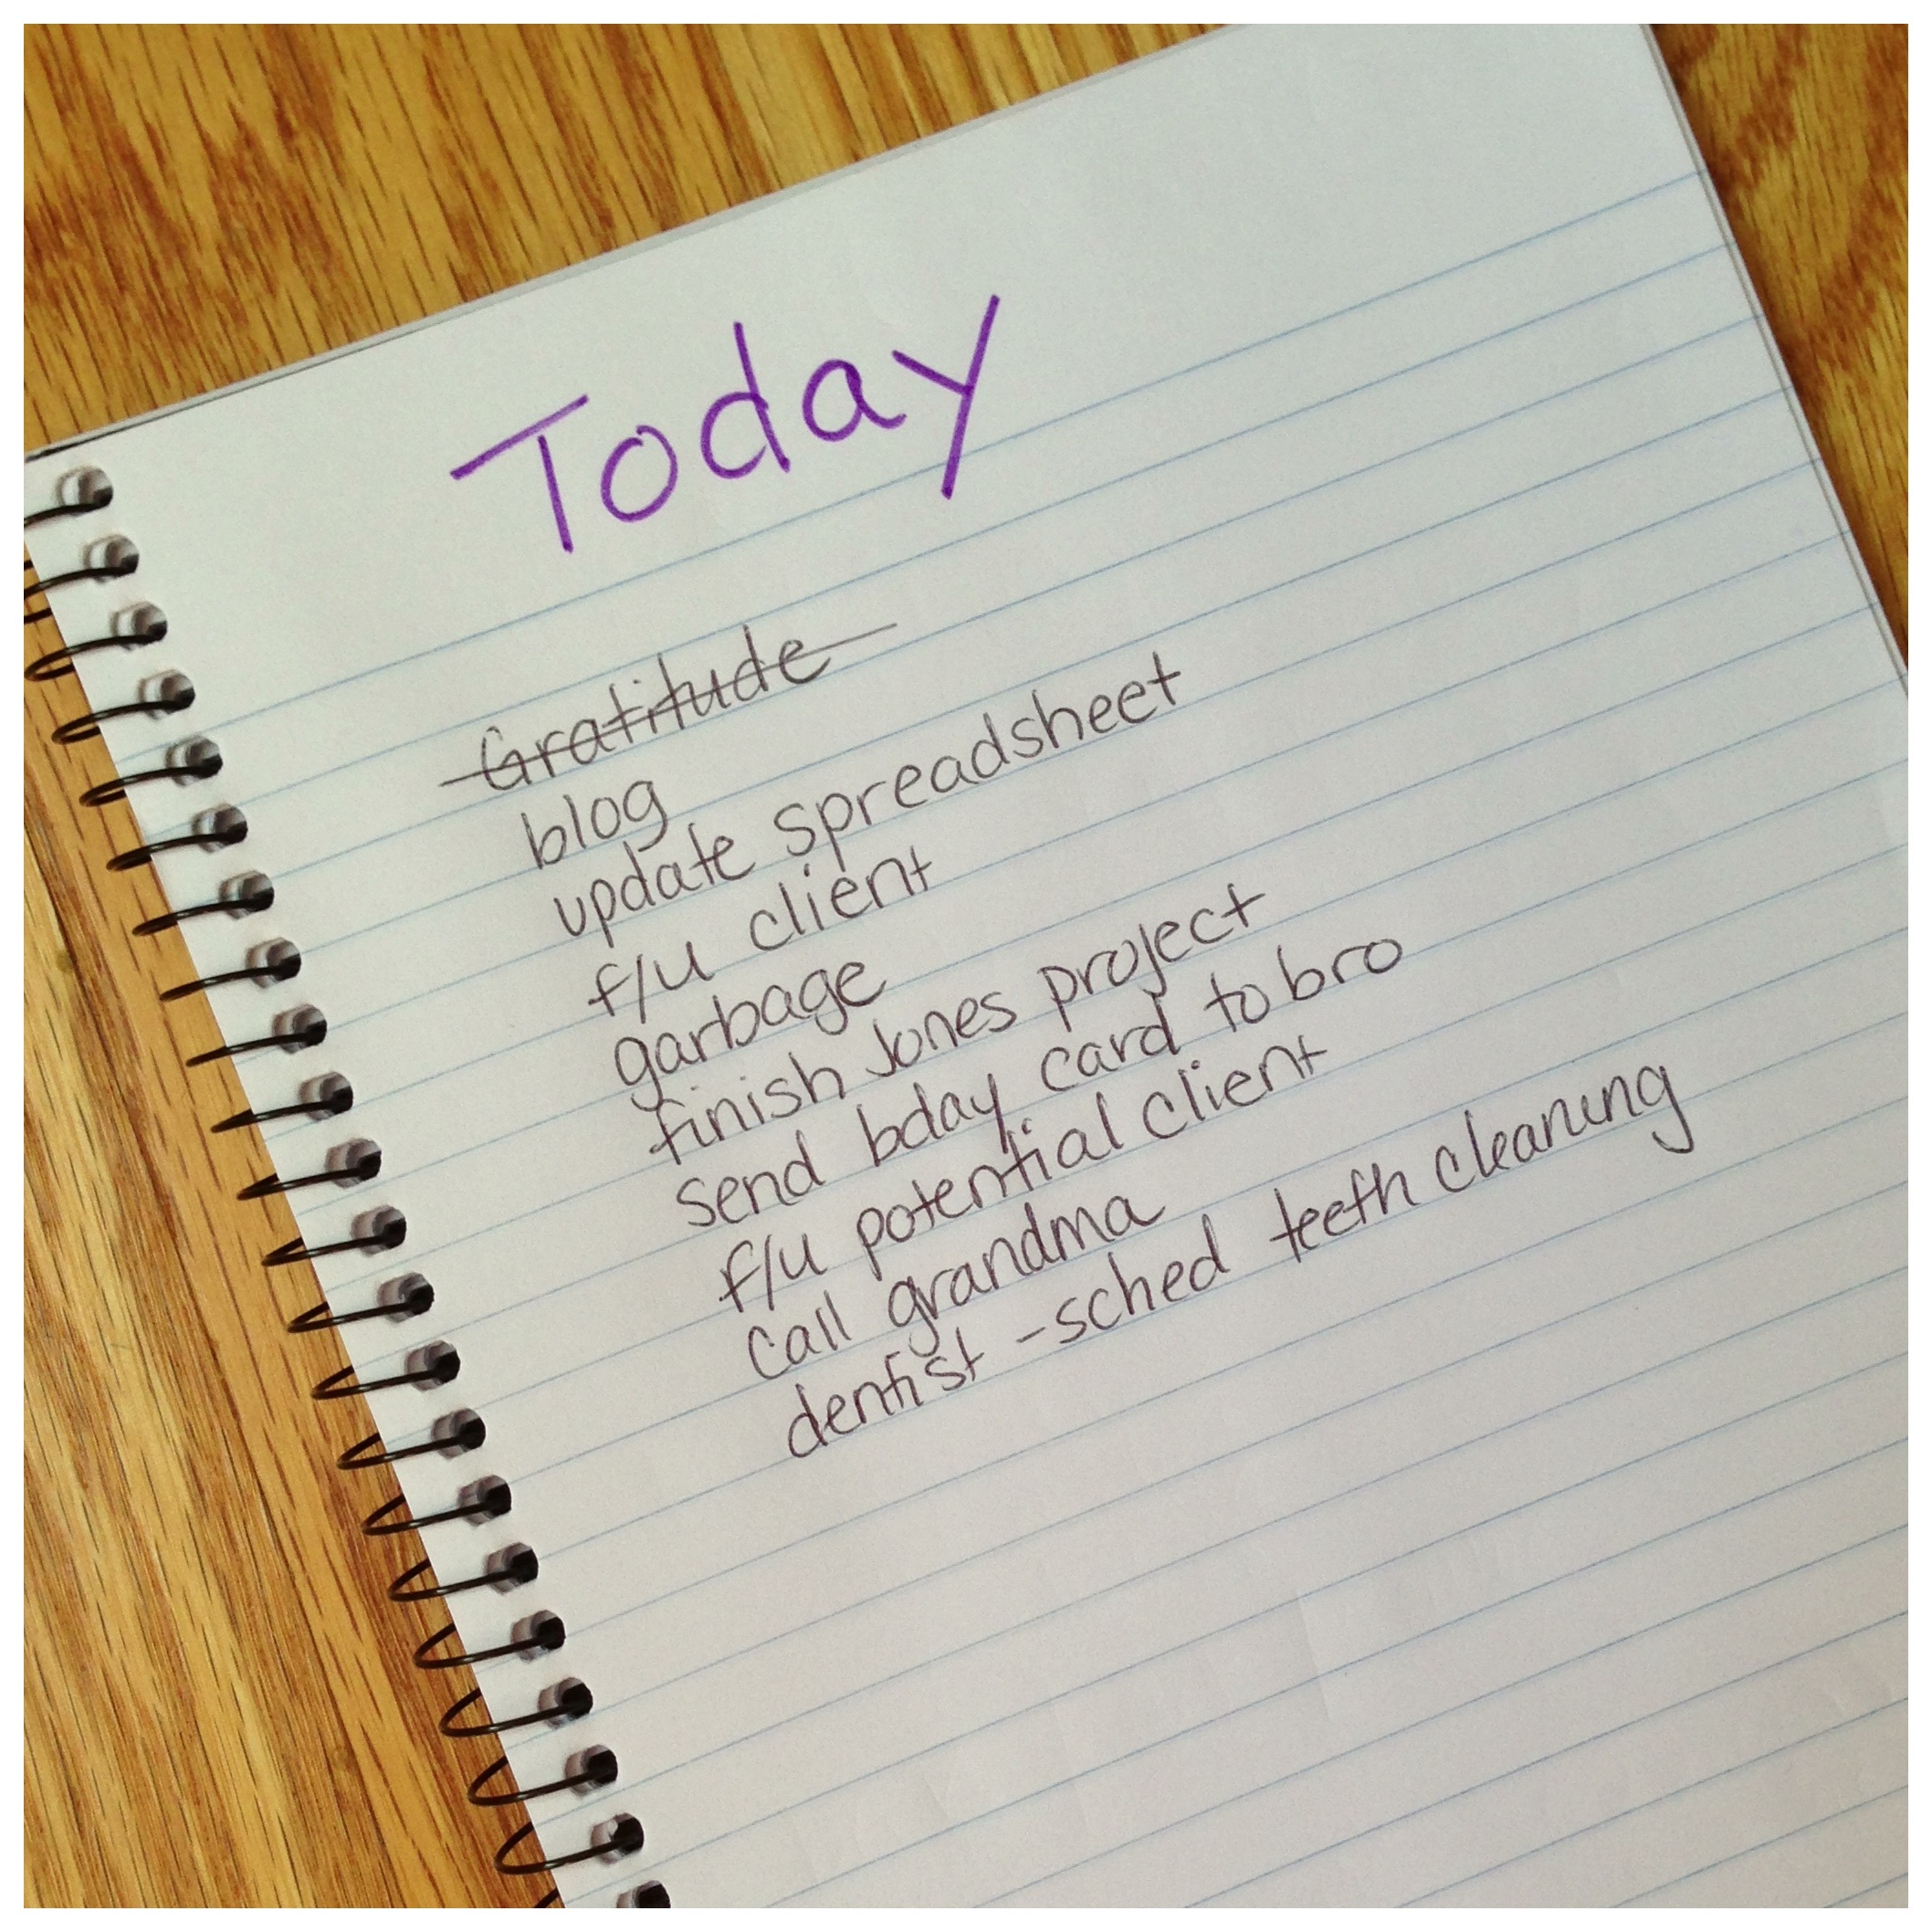 Today
Gratitude
blog
update spreadsheet
f/u client
garbage
finish Jones project
send bday card to bro
f/u potential client
call grandma
dentist - sched teeth cleaning